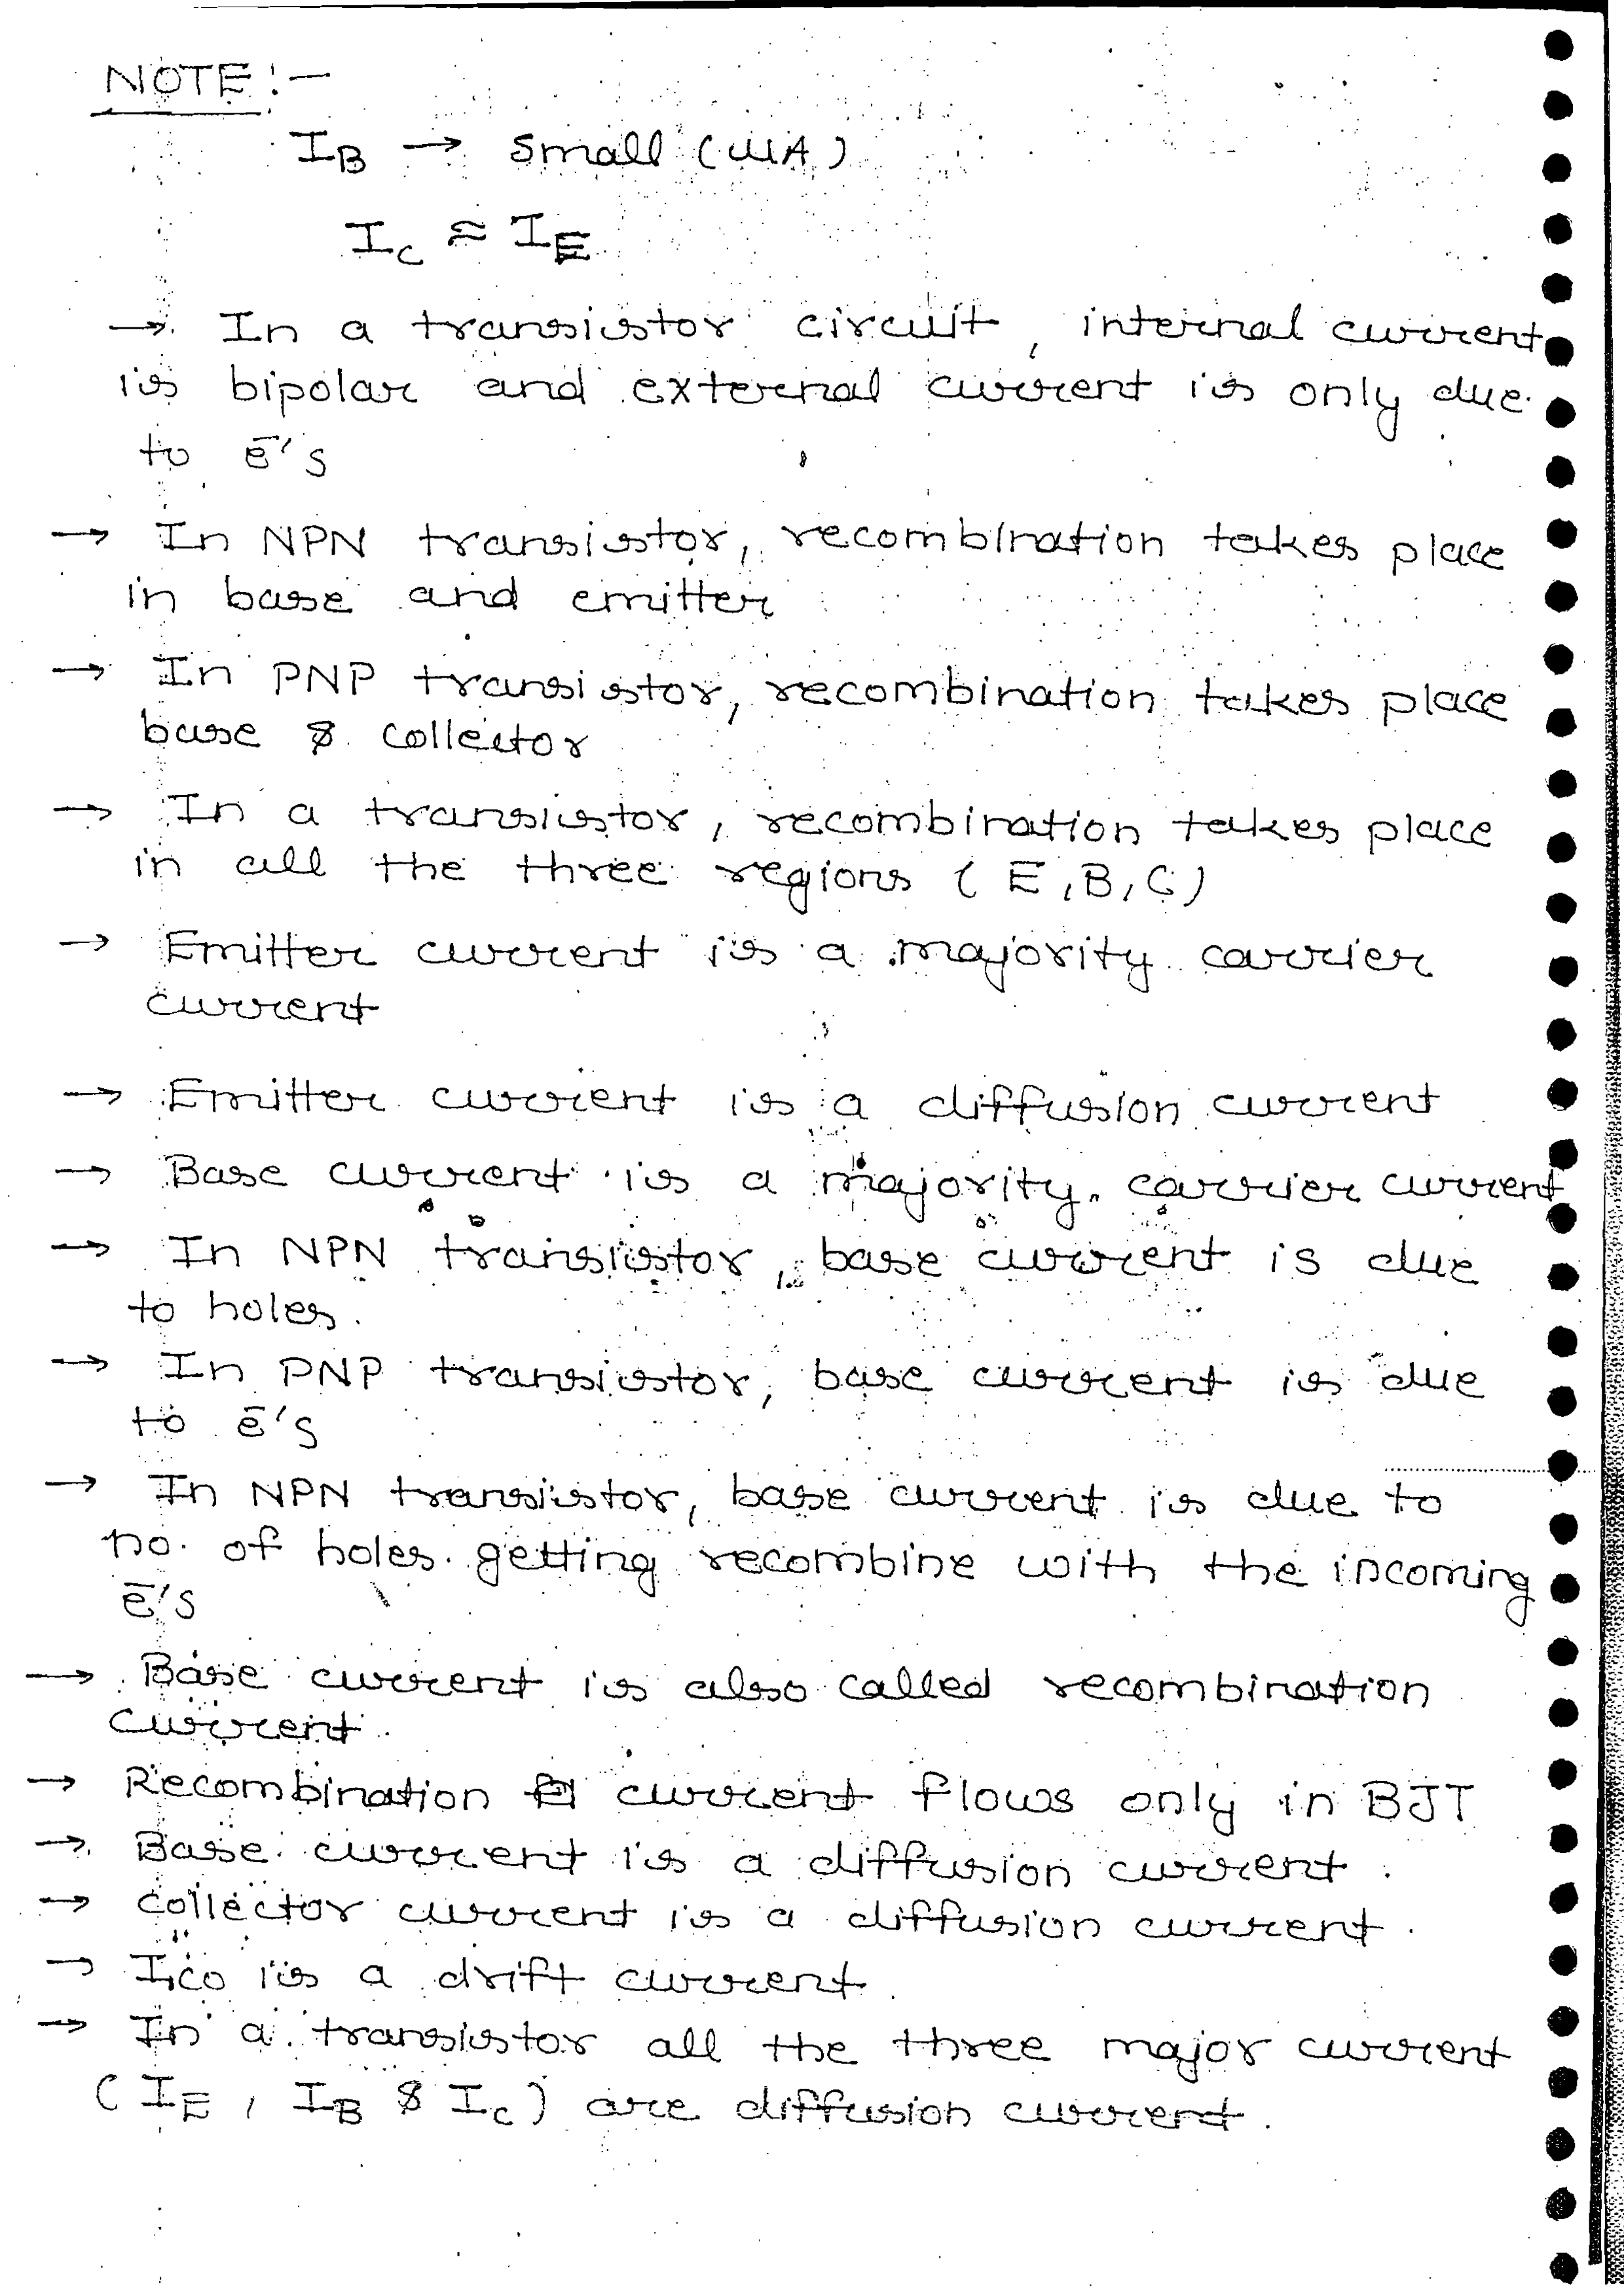 NOTE:-
I_B → small (μA)
I_C ≈ I_E
→ In a transistor circuit, internal current
is bipolar and external current is only due
to ē's
→ In NPN transistor, recombination takes place
in base and emitter
→ In PNP transistor, recombination takes place
base & collector
→ In a transistor, recombination takes place
in all the three regions (E, B, C)
→ Emitter current is a majority carrier
current
→ Emitter current is a diffusion current
→ Base current is a majority carrier current
→ In NPN transistor, base current is due
to holes.
→ In PNP transistor, base current is due
to ē's
→ In NPN transistor, base current is due to
no. of holes getting recombine with the incoming
ē's
→ Base current is also called recombination
current.
→ Recombination current flows only in BJT
→ Base current is a diffusion current.
→ collector current is a diffusion current.
→ Ico is a drift current.
→ In a transistor all the three major current
(I_E, I_B & I_C) are diffusion current.